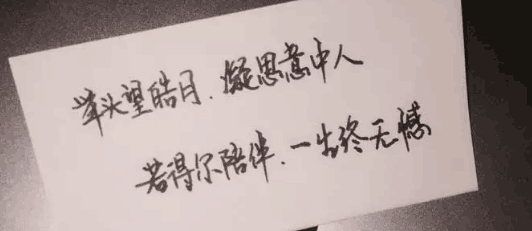 举头望皓月.凝思意中人
若得尔陪伴.一生终无憾